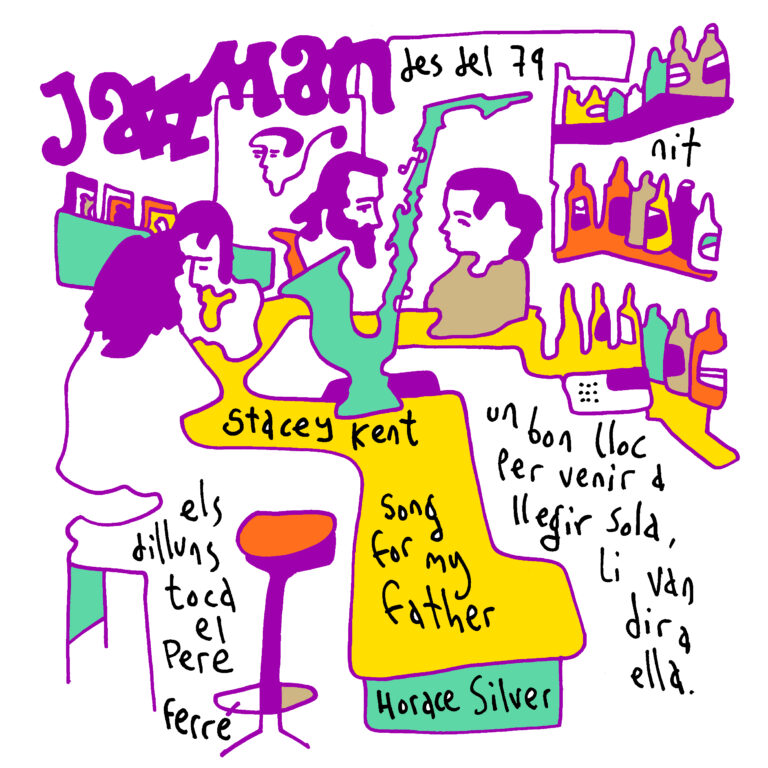 Jazzman
des del 79
nit
Stacey Kent
un
bon lloc
per venir a
llegir sola,
li van
dir a
ella.
song
for my
father
Horace Silver
els
dilluns
toca
el
Pere
Ferré